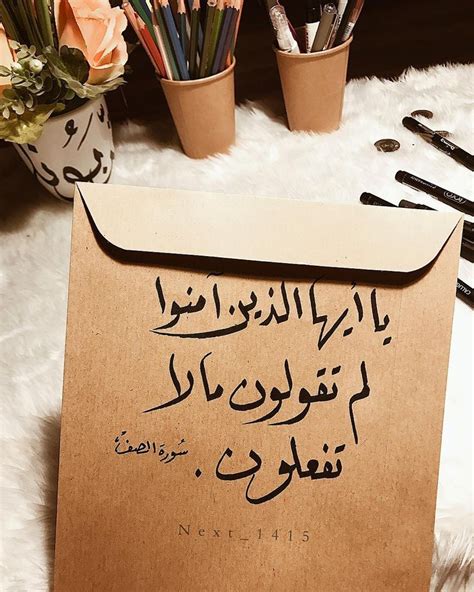 يا أيها الذين آمنوا
لم تقولون مالا
تفعلون .
سورة الصف
Next_1415